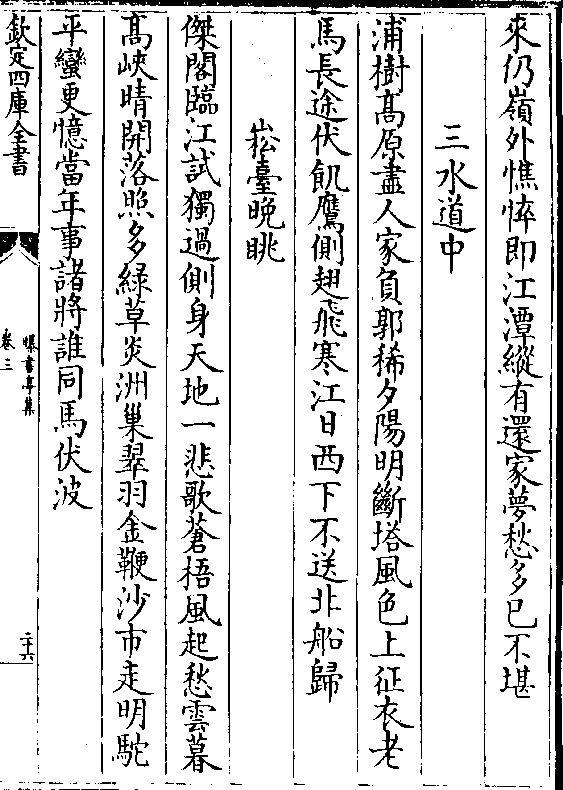 來仍嶺外憔悴即江潭縱有還家夢愁多已不堪
三水道中
浦樹髙原盡人家負郭稀夕陽明斷塔風色上征衣老
馬長途伏飢鷹側翅飛寒江日西下不送北船歸
崧臺晚眺
傑閣臨江試獨過側身天地一悲歌蒼梧風起愁雲暮
髙峽晴開落照多綠草炎洲巢翠羽金鞭沙市走明駝
平蠻更憶當年事諸將誰同馬伏波
欽定四庫全書
曝書亭集
卷三
二十六